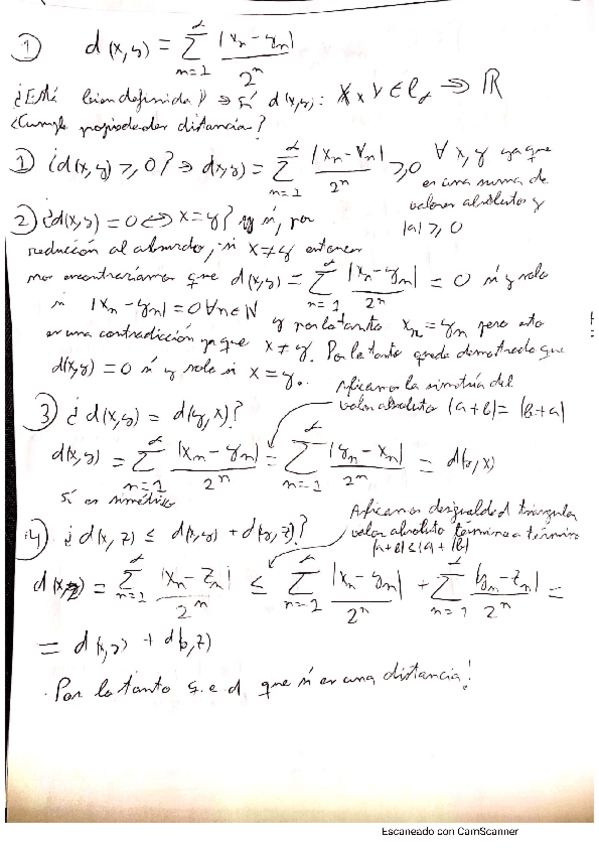 1) d(x,y) = ∑_{n=1}^{∞} |x_n - y_n| / 2^n
¿Está bien definida? ⇒ Sí d(x,y): X, Y ∈ l_∞ ⇒ ℝ
¿Cumple propiedades distancia?
1) ¿d(x,y) ≥ 0? ⇒ d(x,y) = ∑_{n=1}^{∞} |x_n - y_n| / 2^n ≥ 0 ∀ x, y ya que
es una suma de
valores absolutos y
|a| ≥ 0
2) ¿d(x,y) = 0 ⟺ x = y? sí, por
reducción al absurdo, si x ≠ y entonces
nos encontraríamos que d(x,y) = ∑_{n=1}^{∞} |x_n - y_n| / 2^n = 0 si y solo
si |x_n - y_n| = 0 ∀n ∈ N y por lo tanto x_n = y_n pero esto
es una contradicción ya que x ≠ y. Por lo tanto queda demostrado que
d(x,y) = 0 si y solo si x = y.
Aplicamos la simetría del
valor absoluto |a+b| = |b+a|
3) ¿d(x,y) = d(y,x)?
d(x,y) = ∑_{n=1}^{∞} |x_n - y_n| / 2^n = ∑_{n=1}^{∞} |y_n - x_n| / 2^n = d(y,x)
Sí es simétrica
Aplicamos desigualdad triangular
valor absoluto término a término
|a+b| ≤ |a| + |b|
4) ¿d(x,z) ≤ d(x,y) + d(y,z)?
d(x,z) = ∑_{n=1}^{∞} |x_n - z_n| / 2^n ≤ ∑_{n=1}^{∞} |x_n - y_n| / 2^n + ∑_{n=1}^{∞} |y_n - z_n| / 2^n =
= d(x,y) + d(y,z)
Por lo tanto q.e.d que sí es una distancia!
Escaneado con CamScanner